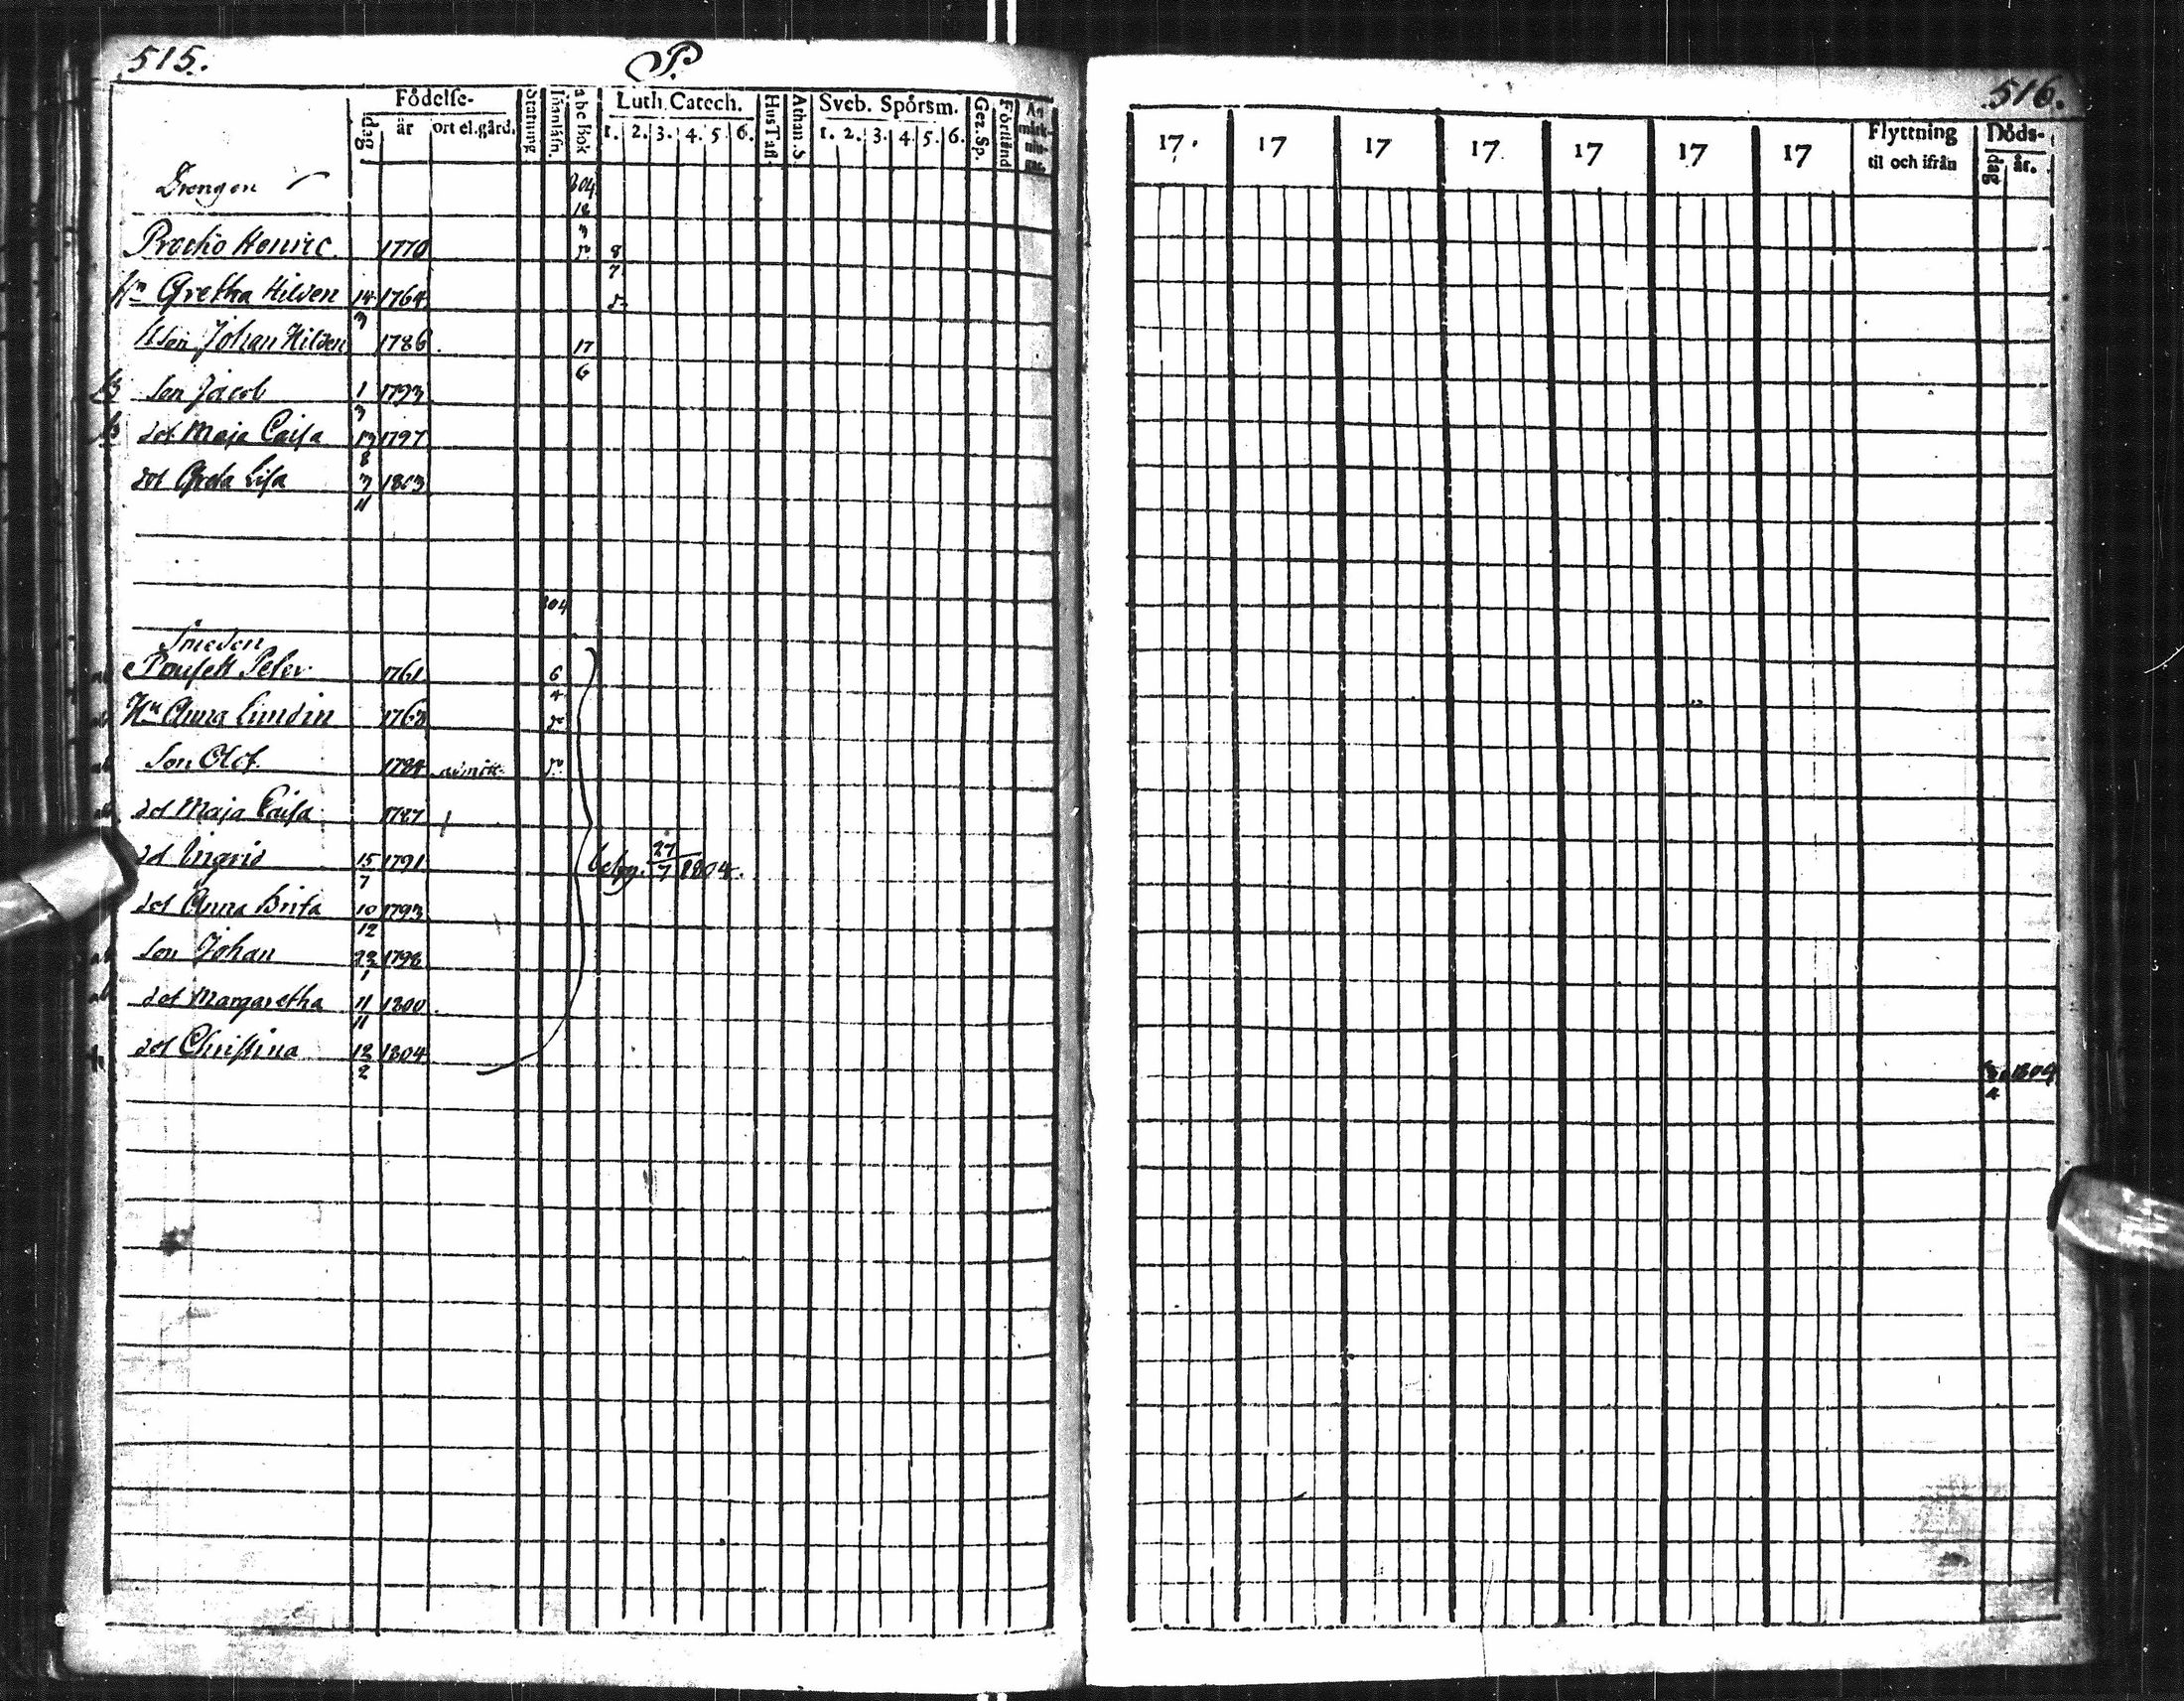 515.
P.
Födelse-
dag
år
ort el. gård.
Innaläsn.
abc Bok
Luth. Catech.
1. 2. 3. 4. 5. 6.
Hus Tafl
Athan. S
Sveb. Spörsm.
1. 2. 3. 4. 5. 6.
Gez. Sp.
Förstånd
An
märk-
nin-
gar.
Drengen 804
18
3
Henric 1770 8
7
Hn Gretha Hilden 14 1764
3
Johan Hilden 1786. 17
6
Son Jacob 1 1793
3
dot Maja Caisa 1797
8
dot Greta Lisa 7 1803
11
804
Smeden
Peter 1761 6
4
Hn Anna Lundin 1763
Son Olof 1784 admitt.
dot Maja Caisa 1787
dot Ingrid 15 1791 27
7 7 1804.
dot Anna Brita 10 1793
12
Son Johan 23 1798
1
dot Margaretha 11 1800.
11
dot Christina 12 1804
2
516.
17. 17 17 17 17 17 17
Flyttning
til och ifrån
Döds-
dag
år.
1804
4